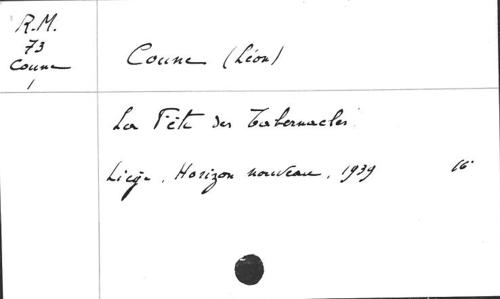 R.M.
73
Coune
1
Coune (Léon)
La Fête des Tabernacles
Liège, Horizon nouveau, 1939 16°